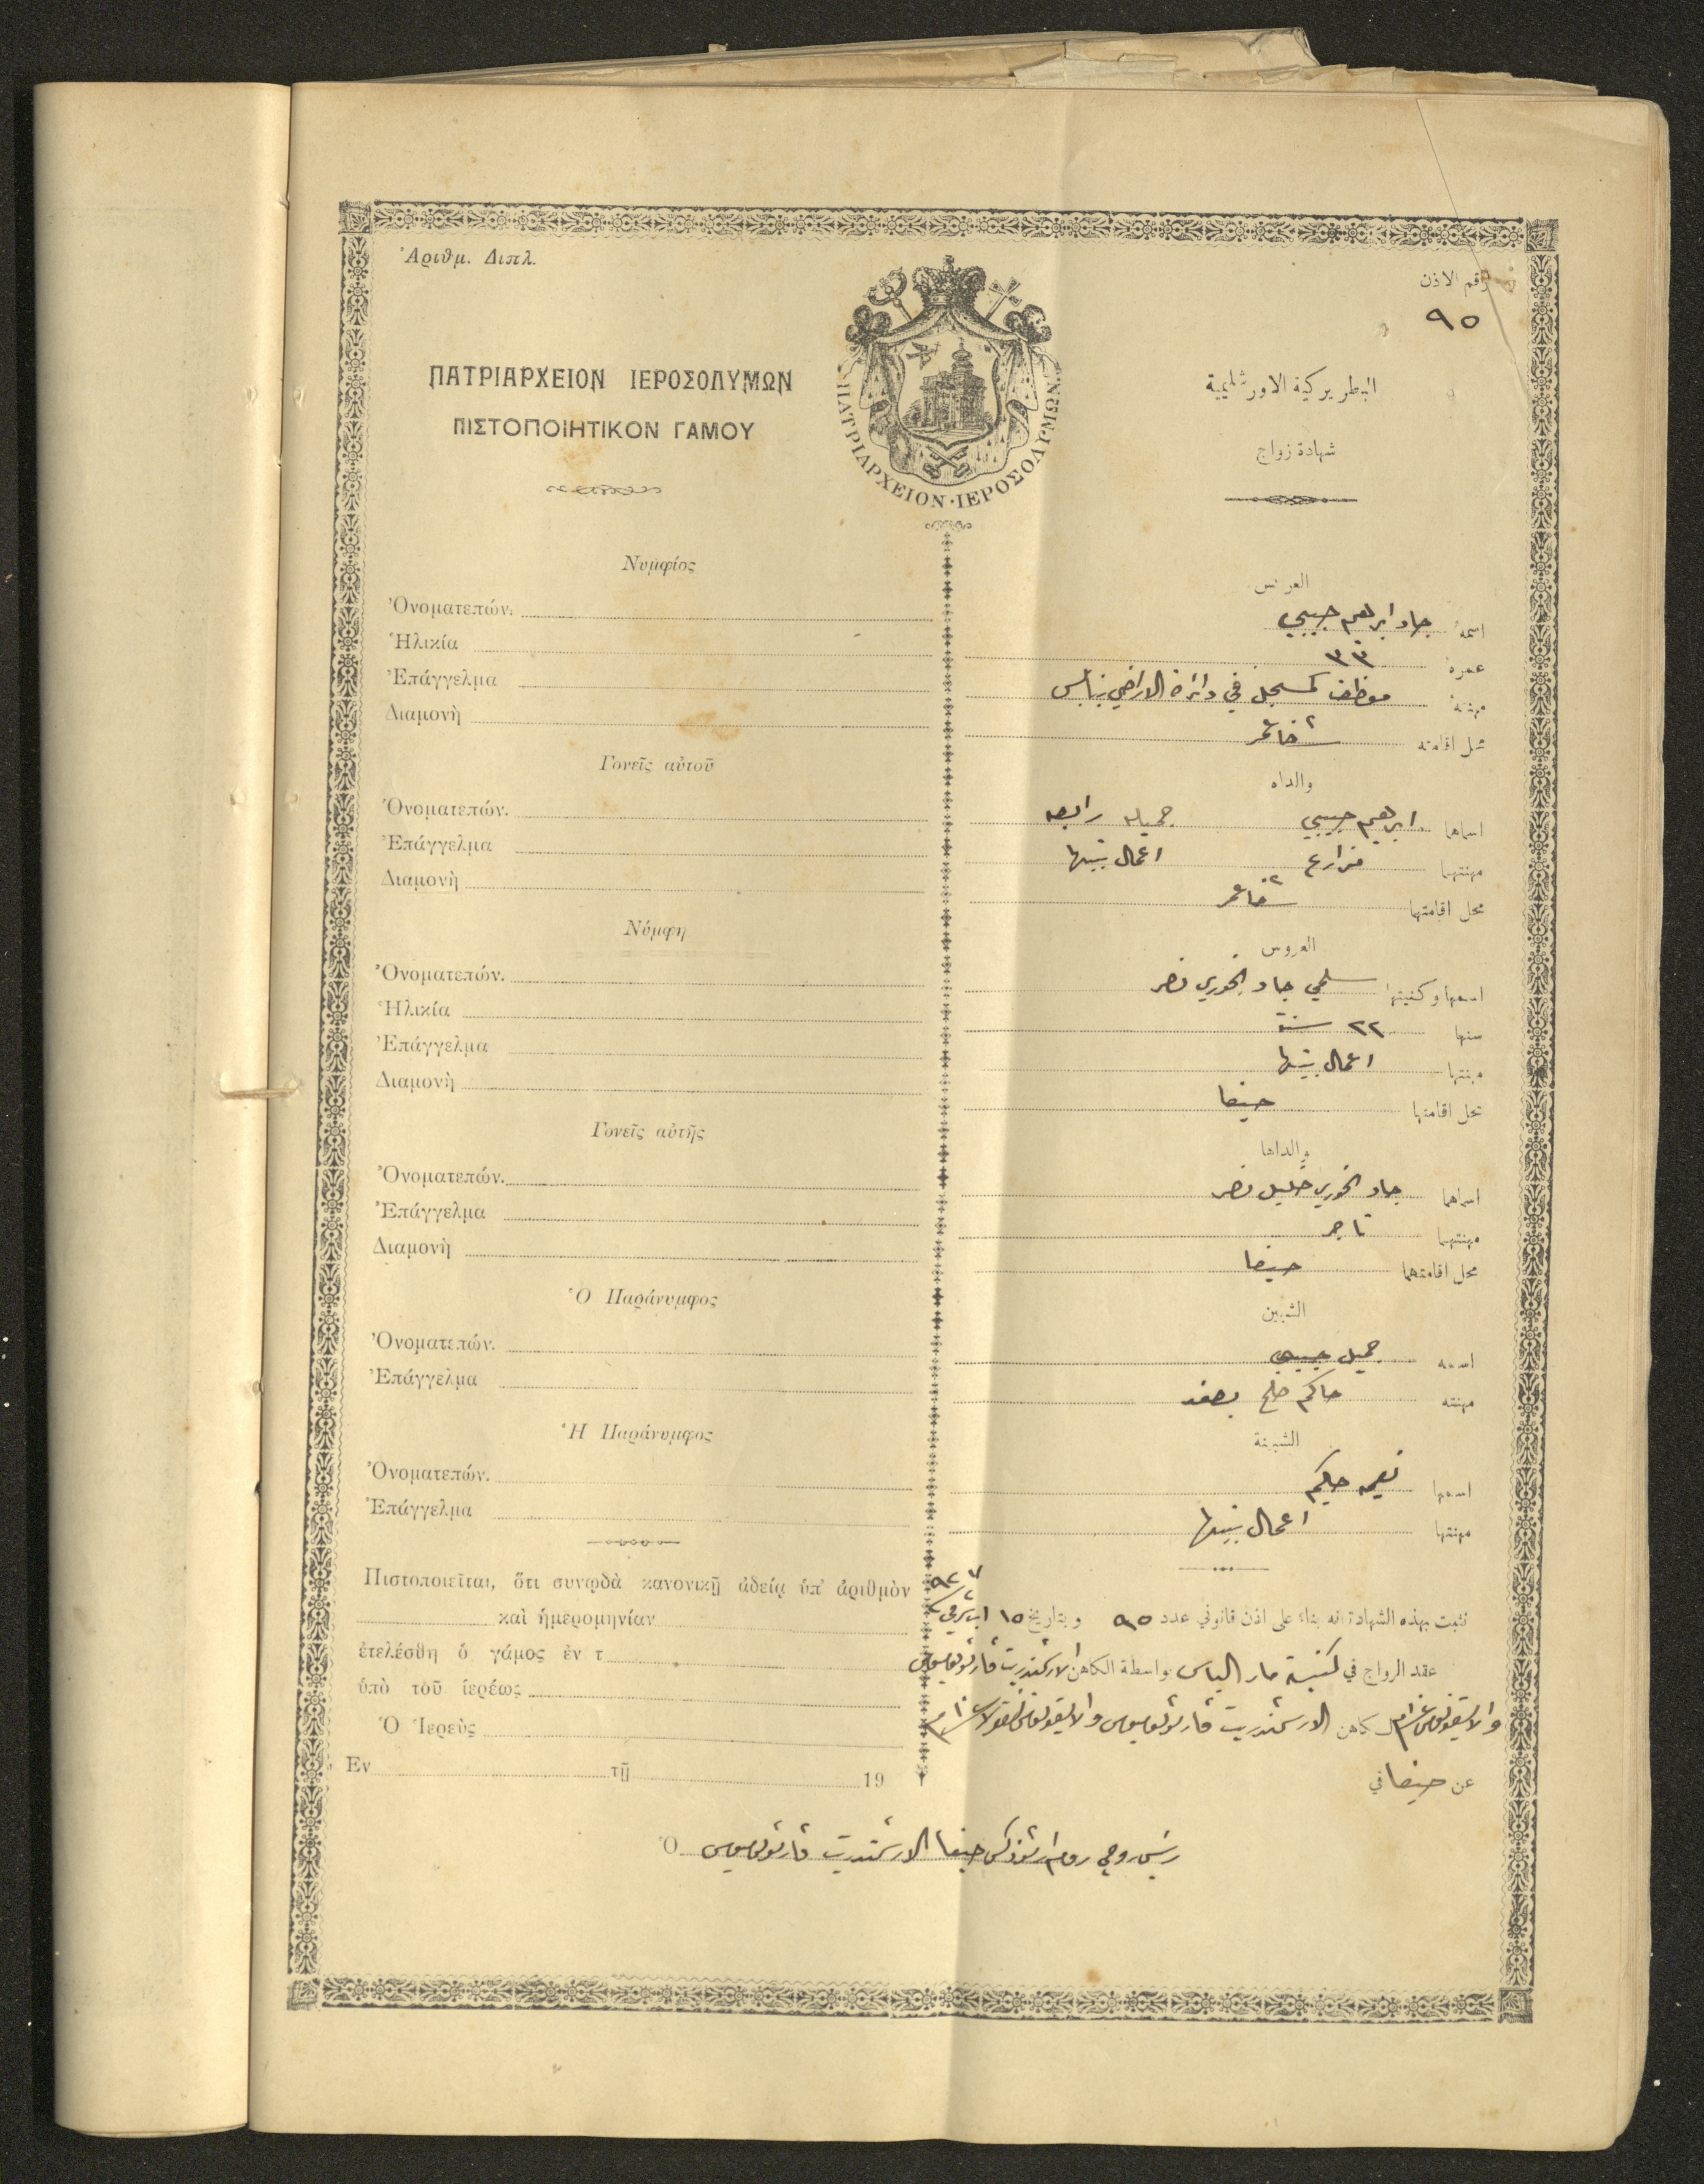 Ἀριθμ. Διπλ.
رقم الاذن
٩٥
ΠΑΤΡΙΑΡΧΕΙΟΝ ΙΕΡΟΣΟΛΥΜΩΝ
ΠΙΣΤΟΠΟΙΗΤΙΚΟΝ ΓΑΜΟΥ
ΠΑΤΡΙΑΡΧΕΙΟΝ·ΙΕΡΟΣΟΛΥΜΩΝ
البطريركية الاورشليمية
شهادة زواج
Νυμφίος
Ὀνοματεπών.
Ἡλικία
Ἐπάγγελμα
Διαμονὴ
Γονεῖς αὐτοῦ
Ὀνοματεπών.
Ἐπάγγελμα
Διαμονὴ
Νύμφη
Ὀνοματεπών.
Ἡλικία
Ἐπάγγελμα
Διαμονὴ
Γονεῖς αὐτῆς
Ὀνοματεπών.
Ἐπάγγελμα
Διαμονὴ
Ὁ Παράνυμφος
Ὀνοματεπών.
Ἐπάγγελμα
Ἡ Παράνυμφος
Ὀνοματεπών.
Ἐπάγγελμα
Πιστοποιεῖται, ὅτι συνῳδὰ κανονικῇ ἀδείᾳ ὑπ' ἀριθμὸν
καὶ ἡμερομηνίαν
ἐτελέσθη ὁ γάμος ἐν τ
ὑπὸ τοῦ ἱερέως
Ὁ Ἱερεὺς
Εν τῇ 19
العريس
اسمه جاد ابرهيم حبيبي
عمره ٣٣
مهنته موظف كمسجل في دائرة الاراضي بنابلس
محل اقامته شفاعمر
والداه
اسماهما ابرهيم حبيبي جميله رابعه
مهنتهما مزارع اعمال بيتها
محل اقامتهما شفاعمر
العروس
اسمها وكنيتها سلمي جاد الخوري نصر
سنها ٢٢ سنة
مهنتها اعمال بيتها
محل اقامتها حيفا
والداها
اسماهما جاد الخوري خليل نصر
مهنتهما تاجر
محل اقامتهما حيفا
الشبين
اسمه جميل حبيبي
مهنته حاكم صلح بصفد
الشبينة
اسمها نعيمه حكيم
مهنتها اعمال بيتها
نثبت بهذه الشهادة انه بناء على اذن قانوني عدد ٩٥ وبتاريخ ١٥ اب شرقي ٩٢٧
عقد الزواج في كنيسة مار الياس بواسطة الكاهن الارشمندريت
كاهن الارشمندريت
عن حيفا في
رئيس روحي روم ارثوذكس حيفا الارشمندريت
Ὁ